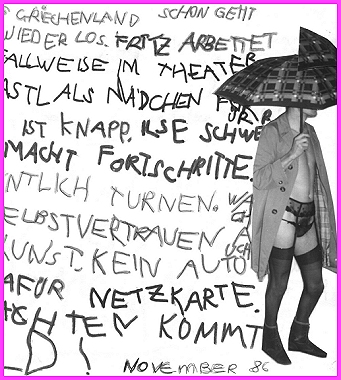 GRIECHENLAND SCHON GEHT
WIEDER LOS. FRITZ ARBEITET
FALLWEISE IM THEATER
ASTL ALS MÄDCHEN FÜR
IST KNAPP. ILSE SCHWE
MACHT FORTSCHRITTE.
NTLICH TURNEN.
ELBSTVERTRAUEN
KUNST. KEIN AUTO
AFÜR NETZKARTE.
CHTEN KOMMT
LD!
NOVEMBER 86